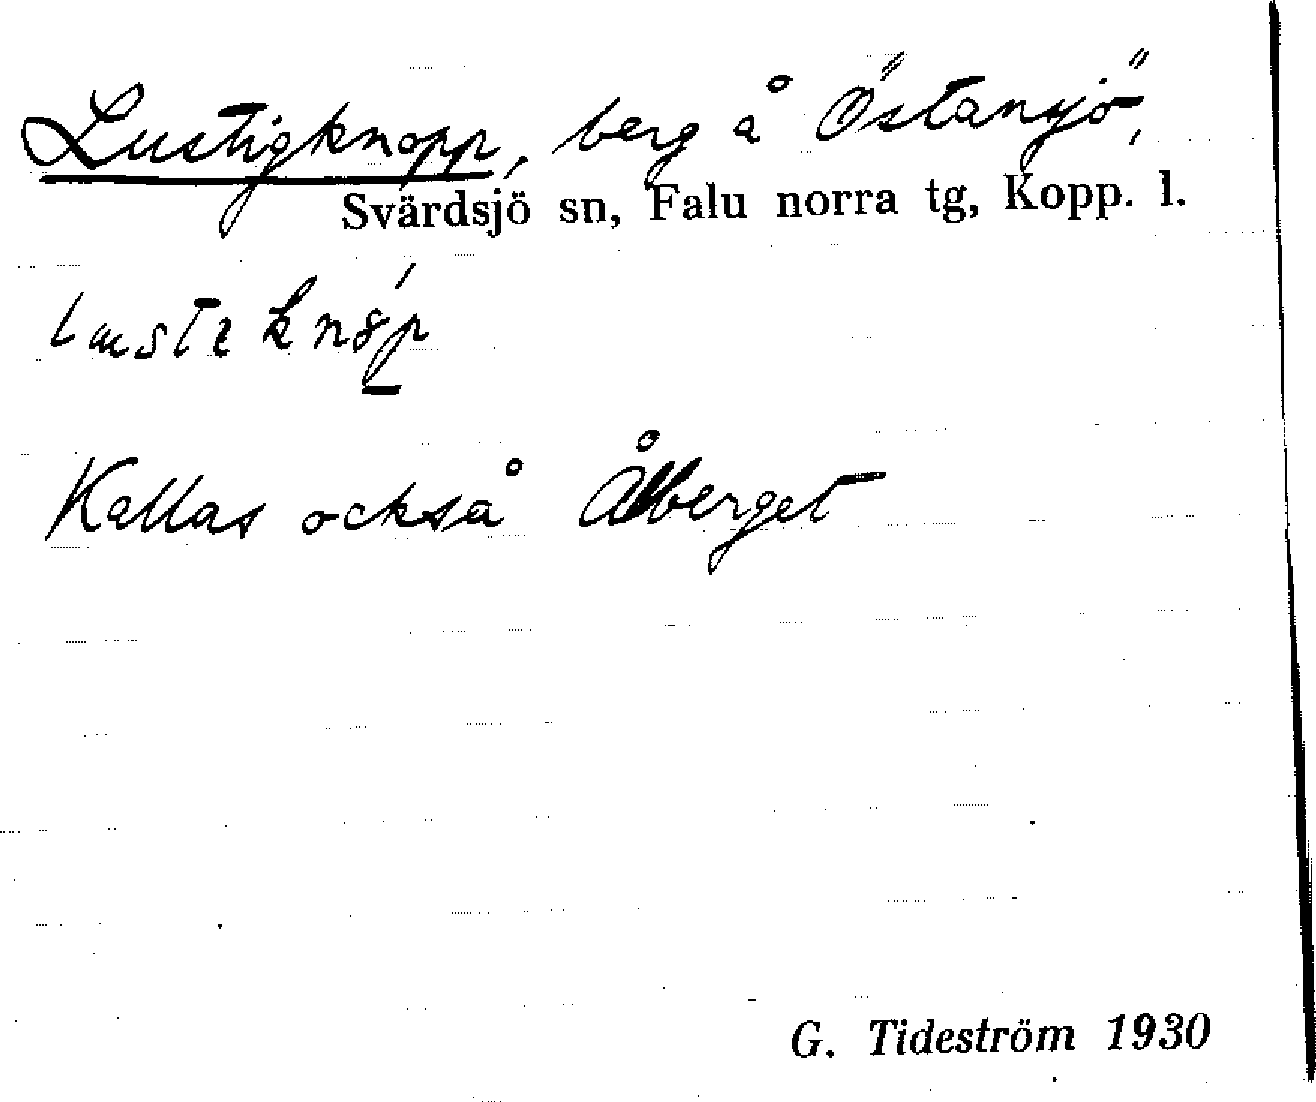 Lustigknopp, berg å Östansjö,
Svärdsjö sn, Falu norra tg, Kopp. l.
Kallas också Ålberget
G. Tideström 1930